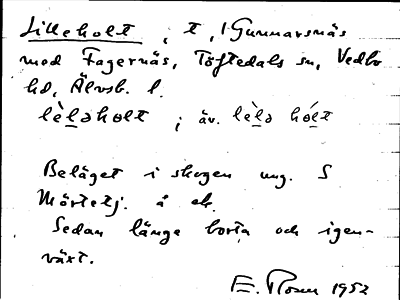 Lilleholt, t, 1 Gunnarsnäs
med Fagernäs, Töftedals sn, Vedbo
hd, Älvsb. l.
lèləholt ; äv. lèlə hólt
Beläget i skogen ung. S
Mårtetj. å ek.
Sedan länge borta och igen-
växt.
E. Rosén 1952